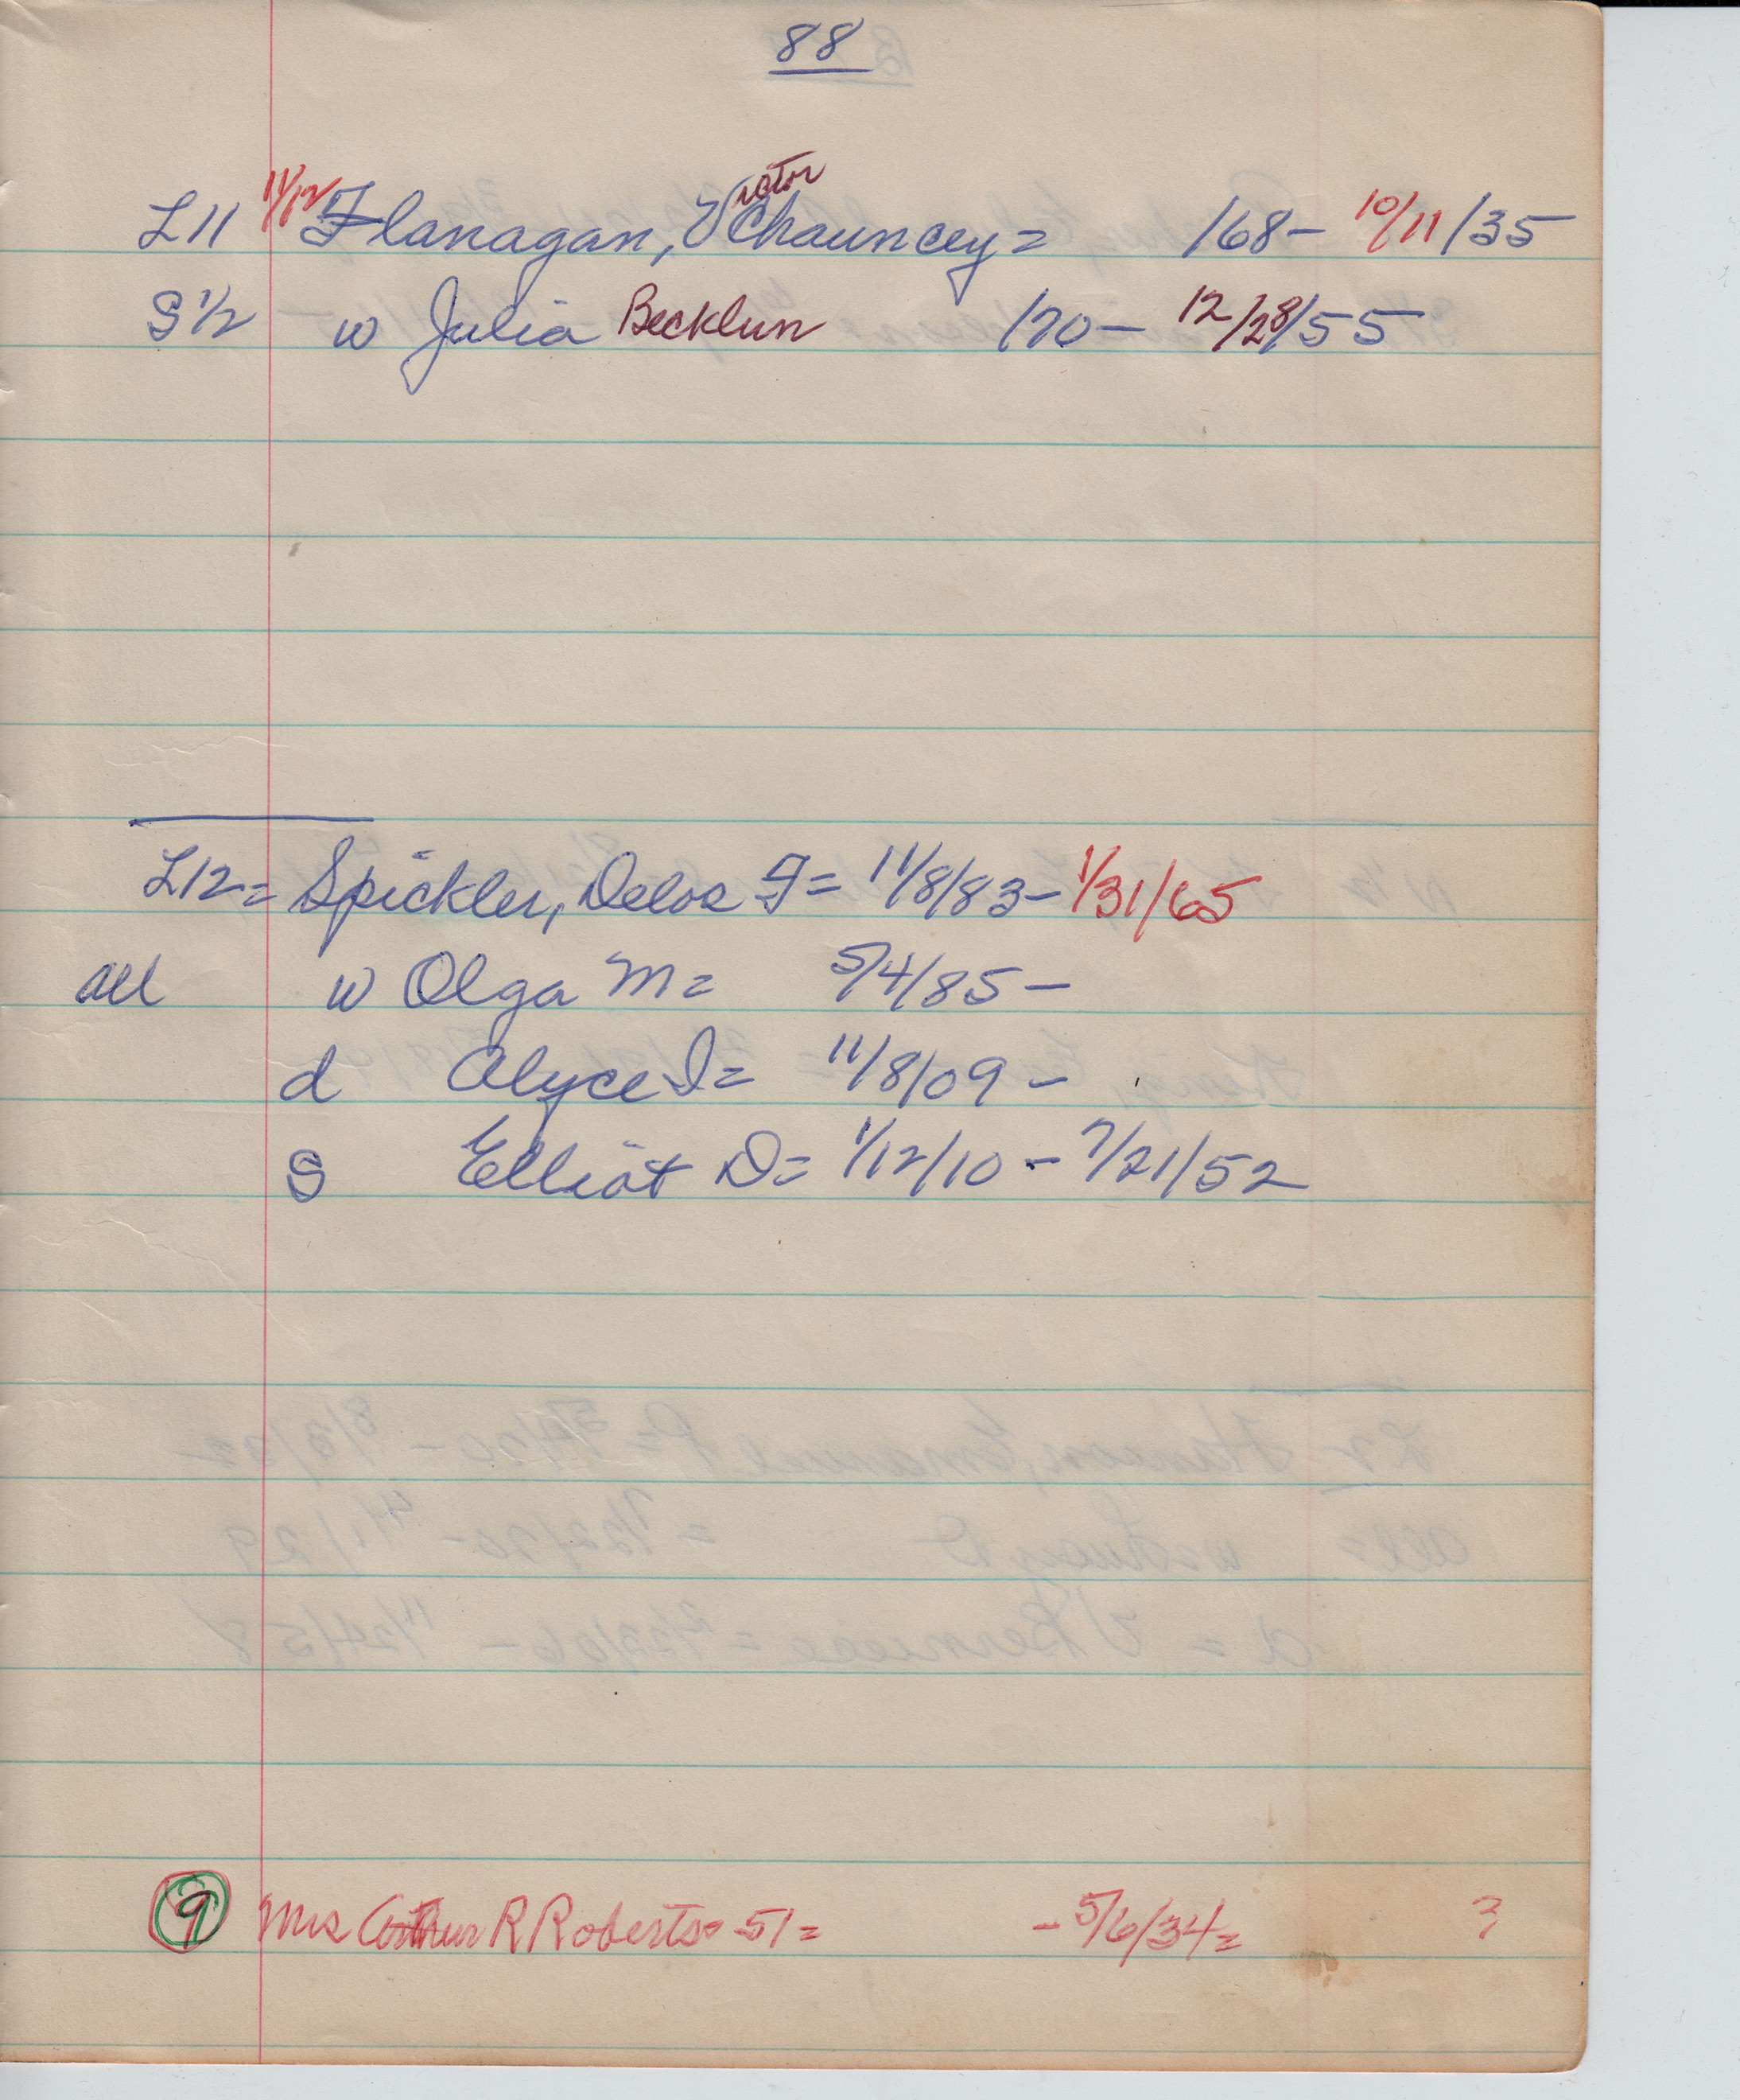 88
L11 11/12 Flanagan, Orator Chauncey = 1868 - 10/11/35
S 1/2 w Julia Becklun 1870 - 12/28/55
L12 = Spickler, Delos F = 11/8/83 - 1/31/65
all w Olga M = 5/4/85 -
d Alyce I = 11/8/09 -
S Elliot D = 1/12/10 - 7/21/52
9 Mrs Arthur R Roberts = 51 = - 5/6/34 = ?